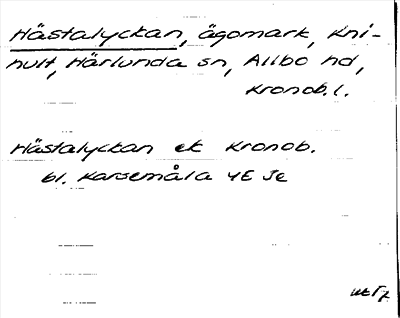 Hästalyckan, ägomark, Kni-
hult, Härlunda sn, Allbo hd,
Kronob. l.
Hästalyckan ek Kronob.
bl. Karsemåla 4E Je